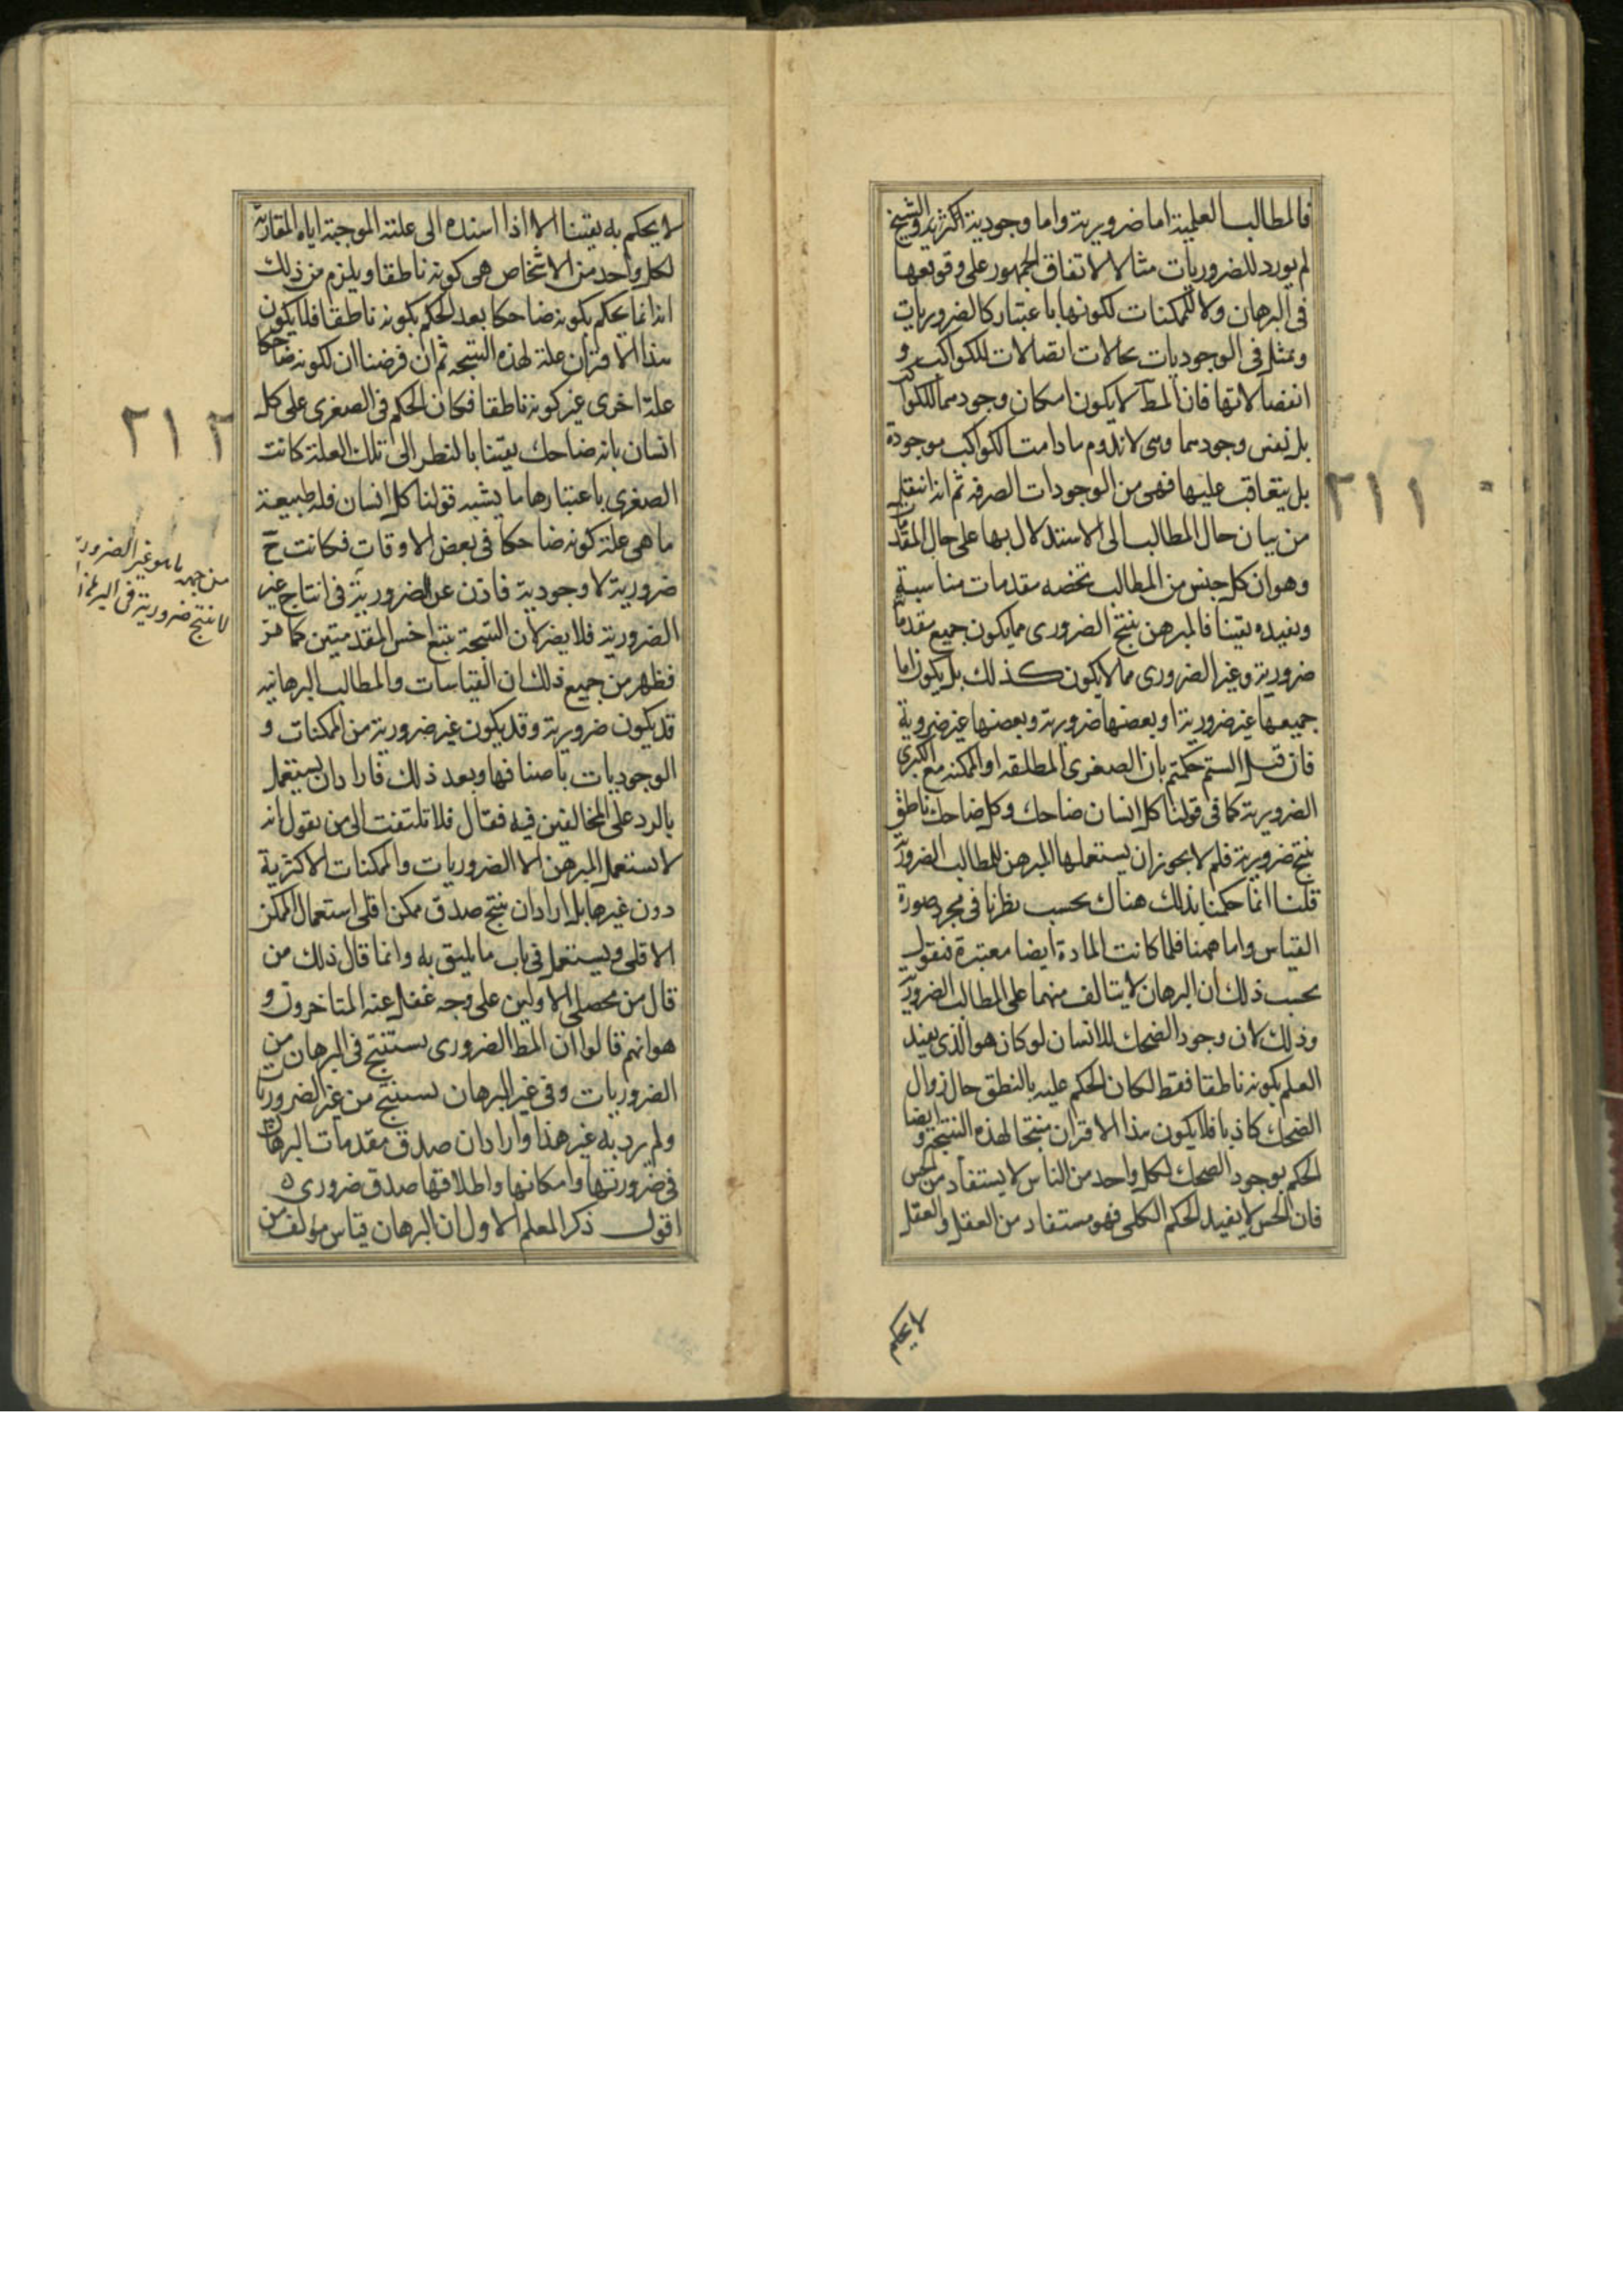 فالمطالب العلمية اما ضرورية واما وجودية اكثرية والشيخ
لم يورد للضروريات مثالا لاتفاق الجمهور على وقوعها
فى البرهان ولا للممكنات لكونها باعتبار كالضروريات
وتمثل فى الوجوديات بحالات اتصالات للكواكب و
انفصالاتها فان المط لا يكون امكان وجودهما للكواكب
بل نفس وجودهما وهى لا تدوم ما دامت الكواكب موجودة
بل يتعاقب عليها فهى من الوجودات الصرفه ثم انه انتقل
من بيان حال المطالب الى الاستدلال بها على حال المقدمات
وهو ان كل جنس من المطالب تخصه مقدمات مناسبة
ويفيده يقينا فالمبرهن ينتج الضرورى مما يكون جميع مقدماته
ضرورية وغير الضرورى مما لا يكون كذلك بل يكون اما
جميعها غير ضرورية او بعضها ضرورية وبعضها غير ضرورية
فان قيل الستم حكمتم بان الصغرى المطلقه او الممكنه مع الكبرى
الضرورية كما فى قولنا كل انسان ضاحك وكل ضاحك ناطق
ينتج ضرورية فلم لا يجوز ان يستعملها المبرهن للمطالب الضرورية
قلنا انما حكمنا بذلك هناك بحسب نظرنا فى مجرد صورة
القياس واما ههنا فلما كانت المادة ايضا معتبرة فنقول
بحسب ذلك ان البرهان لا يتالف منهما على المطالب الضرورية
وذلك لان وجود الضحك للانسان لو كان هو الذى يفيد
العلم بكونه ناطقا فقط لكان الحكم عليه بالنطق حال زوال
الضحك كاذبا فلا يكون هذا الاقتران منتجا لهذه النتيجة و ايضا
الحكم بوجود الضحك لكل واحد من الناس لا يستفاد من الحس
فان الحس لا يفيد الحكم الكلى فهو مستفاد من العقل والعقل
لا يحكم
٢١١
لا يحكم به يقينا الا اذا اسنده الى علته الموجبة اياه المقارنة
لكل واحد من الاشخاص هى كونه ناطقا ويلزم من ذلك
انه انما يحكم بكونه ضاحكا بعد الحكم بكونه ناطقا فلا يكون
هذا الاقتران علة لهذه النتيجه ثم ان فرضنا ان لكونه ضاحكا
علة اخرى غير كونه ناطقا فكان الحكم فى الصغرى على كل
انسان بانه ضاحك يقينا بالنظر الى تلك العلة كانت
الصغرى باعتبارها ما يشبه قولنا كل انسان فله طبيعة
ما هى علة كونه ضاحكا فى بعض الاوقات فكانت ح
ضرورية لا وجودية فاذن عن الضرورية فى انتاج غير
الضرورية فلا يضر لان النتيجة يتبع اخس المقدمتين كما مر
فظهر من جميع ذلك ان القياسات والمطالب البرهانيه
قد يكون ضرورية وقد يكون غير ضرورية من الممكنات و
الوجوديات باصنافها وبعد ذلك فاراد ان يستعمل
بالرد على المخالفين فيه فقال فلا تلتفت الى من يقول انه
لا يستعمل المبرهن الا الضروريات والممكنات الاكثرية
دون غيرها بل اراد ان ينتج صدق ممكن اقلى استعمال الممكن
الاقلى ويستعمل فى باب ما يليق به وانما قال ذلك من
قال من محصلى الاولين على وجه غفل عنه المتاخرون و
هو انهم قالوا ان المط الضرورى يستنتج فى البرهان من
الضروريات وفى غير البرهان يستنتج من غير الضروريات
ولم يرد به غير هذا واراد ان صدق مقدمات البرهان
فى ضرورتها وامكانها واطلاقها صدق ضرورى ه
اقول ذكر المعلم الاول ان البرهان قياس مؤلف من
٢١٢
من جهة ما هو غير الضرورية
لا ينتج ضرورية فى البرهان